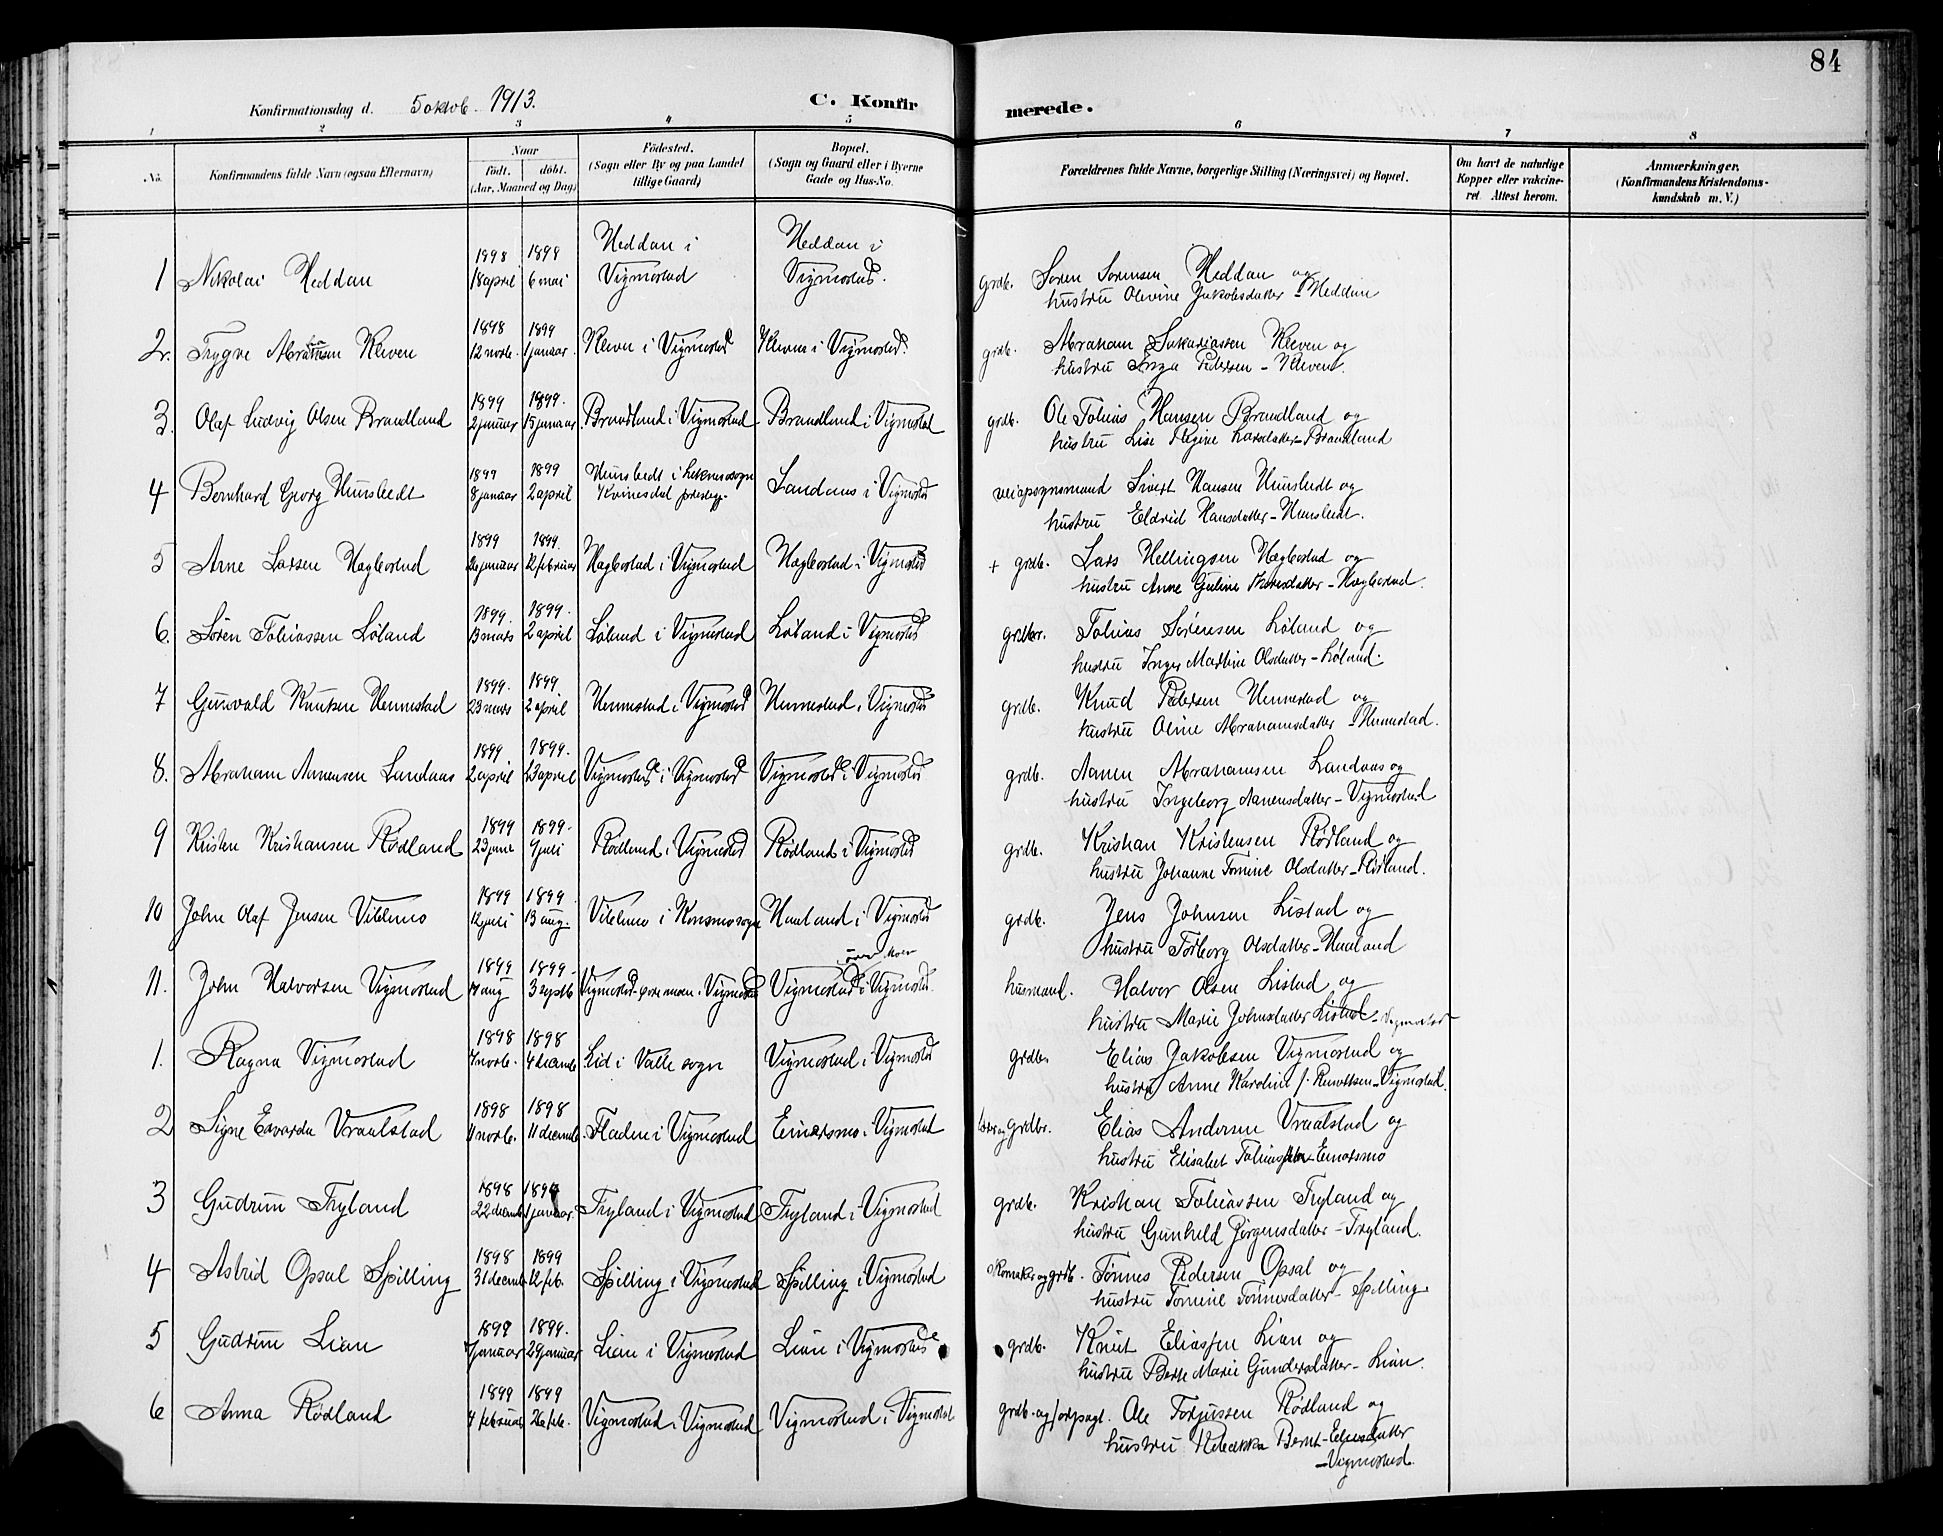 84
Konfirmationsdag d. 5 oktob. 1913.
C. Konfirmerede.
1 2 3 4 5 6 7 8
No.
Konfirmandens fulde Navn (ogsaa Efternavn)
Naar
født. døbt.
(Aar, Maaned og Dag)
Fødested.
(Sogn eller By og paa Landet
tillige Gaard)
Bopæl.
(Sogn og Gaard eller i Byerne
Gade og Hus-No.
Forældrenes fulde Navne, borgerlige Stilling (Næringsvei) og Bopæl.
Om havt de naturlige
Kopper eller vakcine-
ret Attest herom.
Anmærkninger.
(Konfirmandens Kristendoms-
kundskab m. V.)
1 Nikolai Heddan 1898 18 april 1898 6 mai Heddan i Vigmostad Heddan i Vigmostad. grdb. Søren Sørensen Heddan og
hustru Olivine Jakobsdatter - Heddan
2. Trygve Kleven 1898 12 novb. 1899 1 januar. Kleven i Vigmostad Kleven i Vigmostad. grdb. Abraham Sakariassen Kleven og
hustru Inga Pedersen - Kleven.
3. Olaf Ludvig Olsen Brandland 1899 2 januar 1899. 15 januar Brandland i Vigmostad Brandland i Vigmostad grdb. Ole Tobias Hansen Brandland og
hustru Lise Regine Larsdatter - Brandland
4 Bernhard Georg Hunsbedt 1899 8 januar 1899 2 april Hunsbedt i sogn Kvinesdal prestegj. Landaas i Vigmostad Sivert Hansen Hunsbedt og
hustru Eldrid Hansdatter - Hunsbedt.
5 Arne Larsen Hægbostad 1899 26 januar 1899. 12 februar Hægbostad i Vigmostad Hægbostad i Vigmostad + grdb. Lars Hægbostad og
hustru Anne Guline - Hægbostad.
6. Søren Tobiassen Løland 1899. 13 mars 1899. 2 april Løland i Vigmostad Løland i Vigmostad grdbr. Tobias Sørensen Løland og
hustru Inger Martine Olsdatter - Løland.
7 Gunvald Knutsen Hennestad 1899. 23 mars 1899 2 april Hennestad i Vigmostad Hennestad i Vigmostad grdb. Knud Pedersen Hennestad og
hustru Oline Abrahamsdatter - Hennestad.
8. Abraham Aanensen Landaas 1899 2 april 1899. 23 april Vigmostad i Vigmostad Vigmostad i Vigmostad grdb. Aanen Abrahamsen Landaas og
hustru Ingeborg Aanensdatter - Vigmostad
9 Kristen Kristiansen Rødland 1899 23 juni 1899. 9 juli Rødland i Vigmostad Rødland i Vigmostad grdb. Kristian Kristensen Rødland og
hustru Johanne Tomine Olsdatter - Rødland.
10 John Olaf Jensen Vitlemo 1899 12 juli 1899. 13 aug. Vitlemo i Konsmo sogn Haaland i Vigmostad grdb. Jens Johnsen Listad og
hustru Torborg Olsdatter - Haaland
11. John Halvorsen Vigmostad 1899 14 aug 1899. 3 septb Vigmostad øvre moen i Vigmostad øvre Moen Vigmostad i Vigmostad. husmand. Halvor Olsen Listad og
hustru Marie Johnsdatter Listad - Vigmostad
1. Ragna Vigmostad 1898 7 novb. 1898 4 decemb. Lid i Valle sogn Vigmostad i Vigmostad grdb. Elias Jakobsen Vigmostad og
hustru Anne Karoline f. - Vigmostad.
2 Signe Edvarda Vraalstad 1898 11 novb. 1898 11 decemb. Fladen i Vigmostad Eimersmo i Vigmostad grdbr. Elias Andersen Vraalstad og
hustru Elisabet - Eimersmo
3 Gudrun Tryland 1898 22 decemb 1899 1 januar. Tryland i Vigmostad Tryland i Vigmostad grdb. Kristian Tobiassen Tryland og
hustru Gunhild Jørgensdatter - Tryland.
4 Astrid Opsal Spilling 1898 31 decemb 1899 12 feb. Spilling i Vigmostad Spilling i Vigmostad skomaker og grdb. Tønnes Pedersen Opsal og
hustru Tomine Tønnesdatter - Spilling
5 Gudrun Lian 1899 januar 1899. 29 januar Lian i Vigmostad Lian i Vigmostad grdb. Knut Eliassen Lian og
hustru Berte Marie Gundersdatter - Lian.
6 Anna Rødland 1899 4 februar 1899 26 feb. Vigmostad i Vigmostad Vigmostad i Vigmostad grdb. og forpagt. Ole Torjussen Rødland og
hustru Rebekka Bernt-Eliasdatter
- Vigmostad.